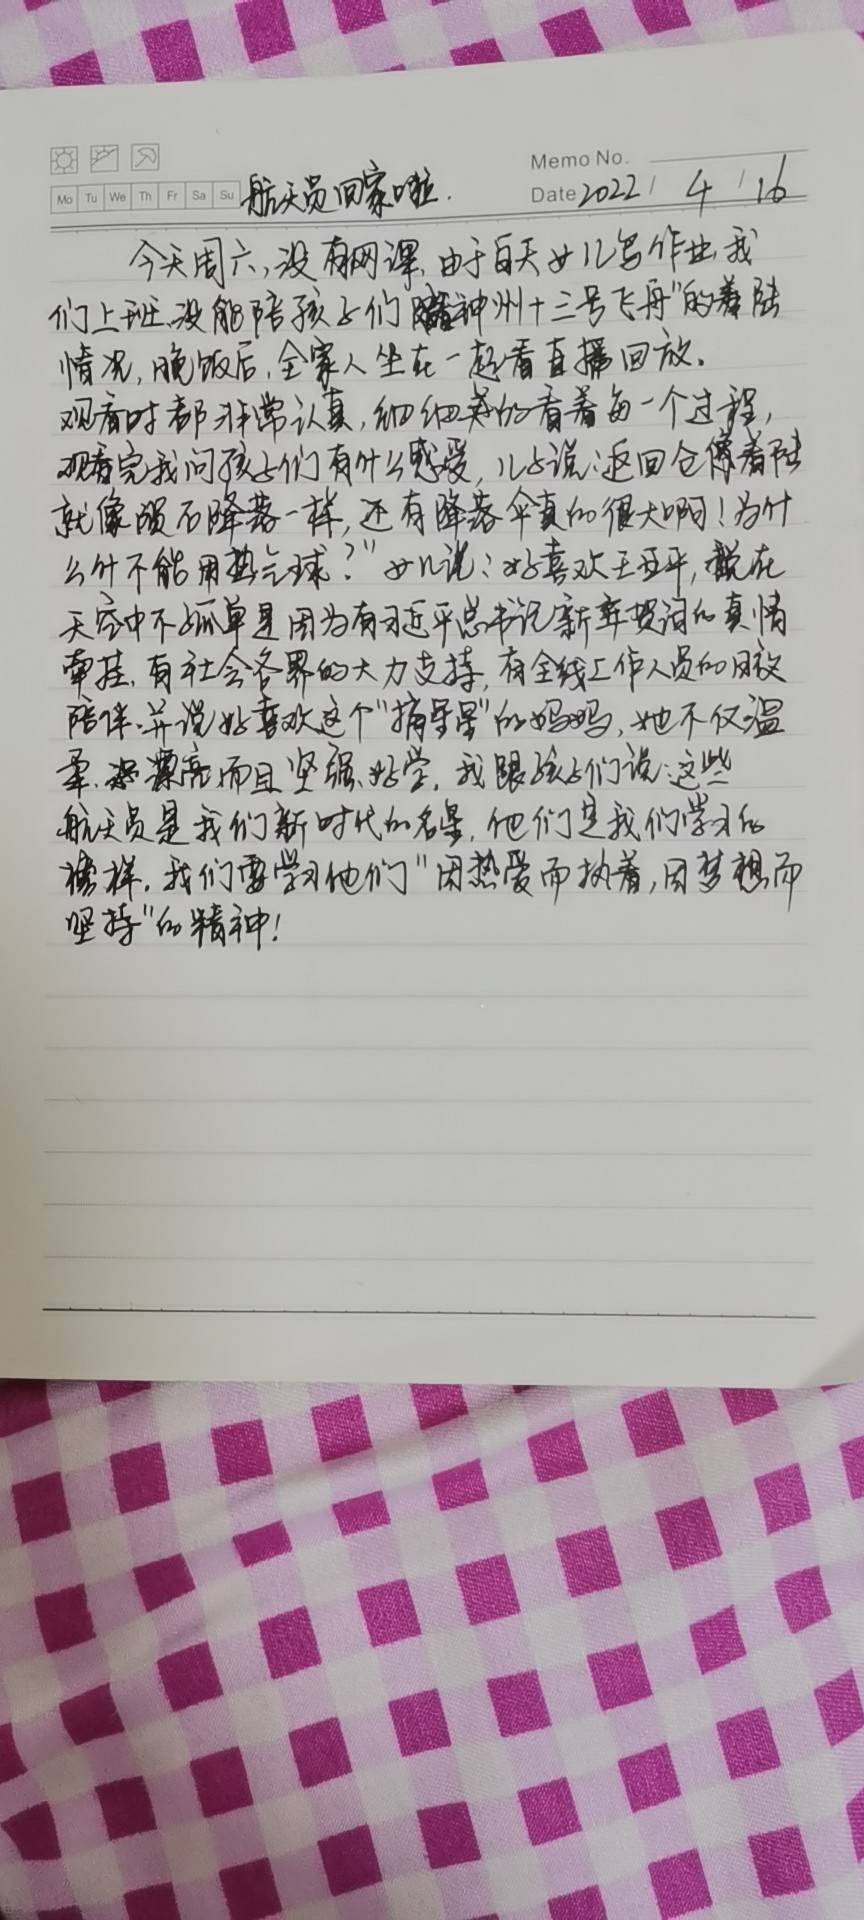 Memo No.
Mo Tu We Th Fr Sa Su 航天员回家啦. Date 2022 / 4 / 16
今天周六,没有网课,由于白天女儿写作业,我
们上班,没能陪孩子们神州十三号飞舟"的着陆
情况,晚饭后,全家人坐在一起看直播回放。
观看时都非常认真,细细的看着每一个过程,
观看完我问孩子们有什么感受,儿子说:返回仓着陆
就像陨石降落一样,还有降落伞真的很大啊!为什
么什不能用热气球?"女儿说:好喜欢王亚平,她在
天空中不孤单是因为有习近平总书记新年贺词的真情
牵挂,有社会各界的大力支持,有全线工作人员的日夜
陪伴.并说好喜欢这个"摘星星"的妈妈,她不仅温
柔、漂亮而且坚强、好学,我跟孩子们说:这些
航天员是我们新时代的名星,他们是我们学习的
榜样,我们要学习他们"因热爱而执着,因梦想而
坚持"的精神!